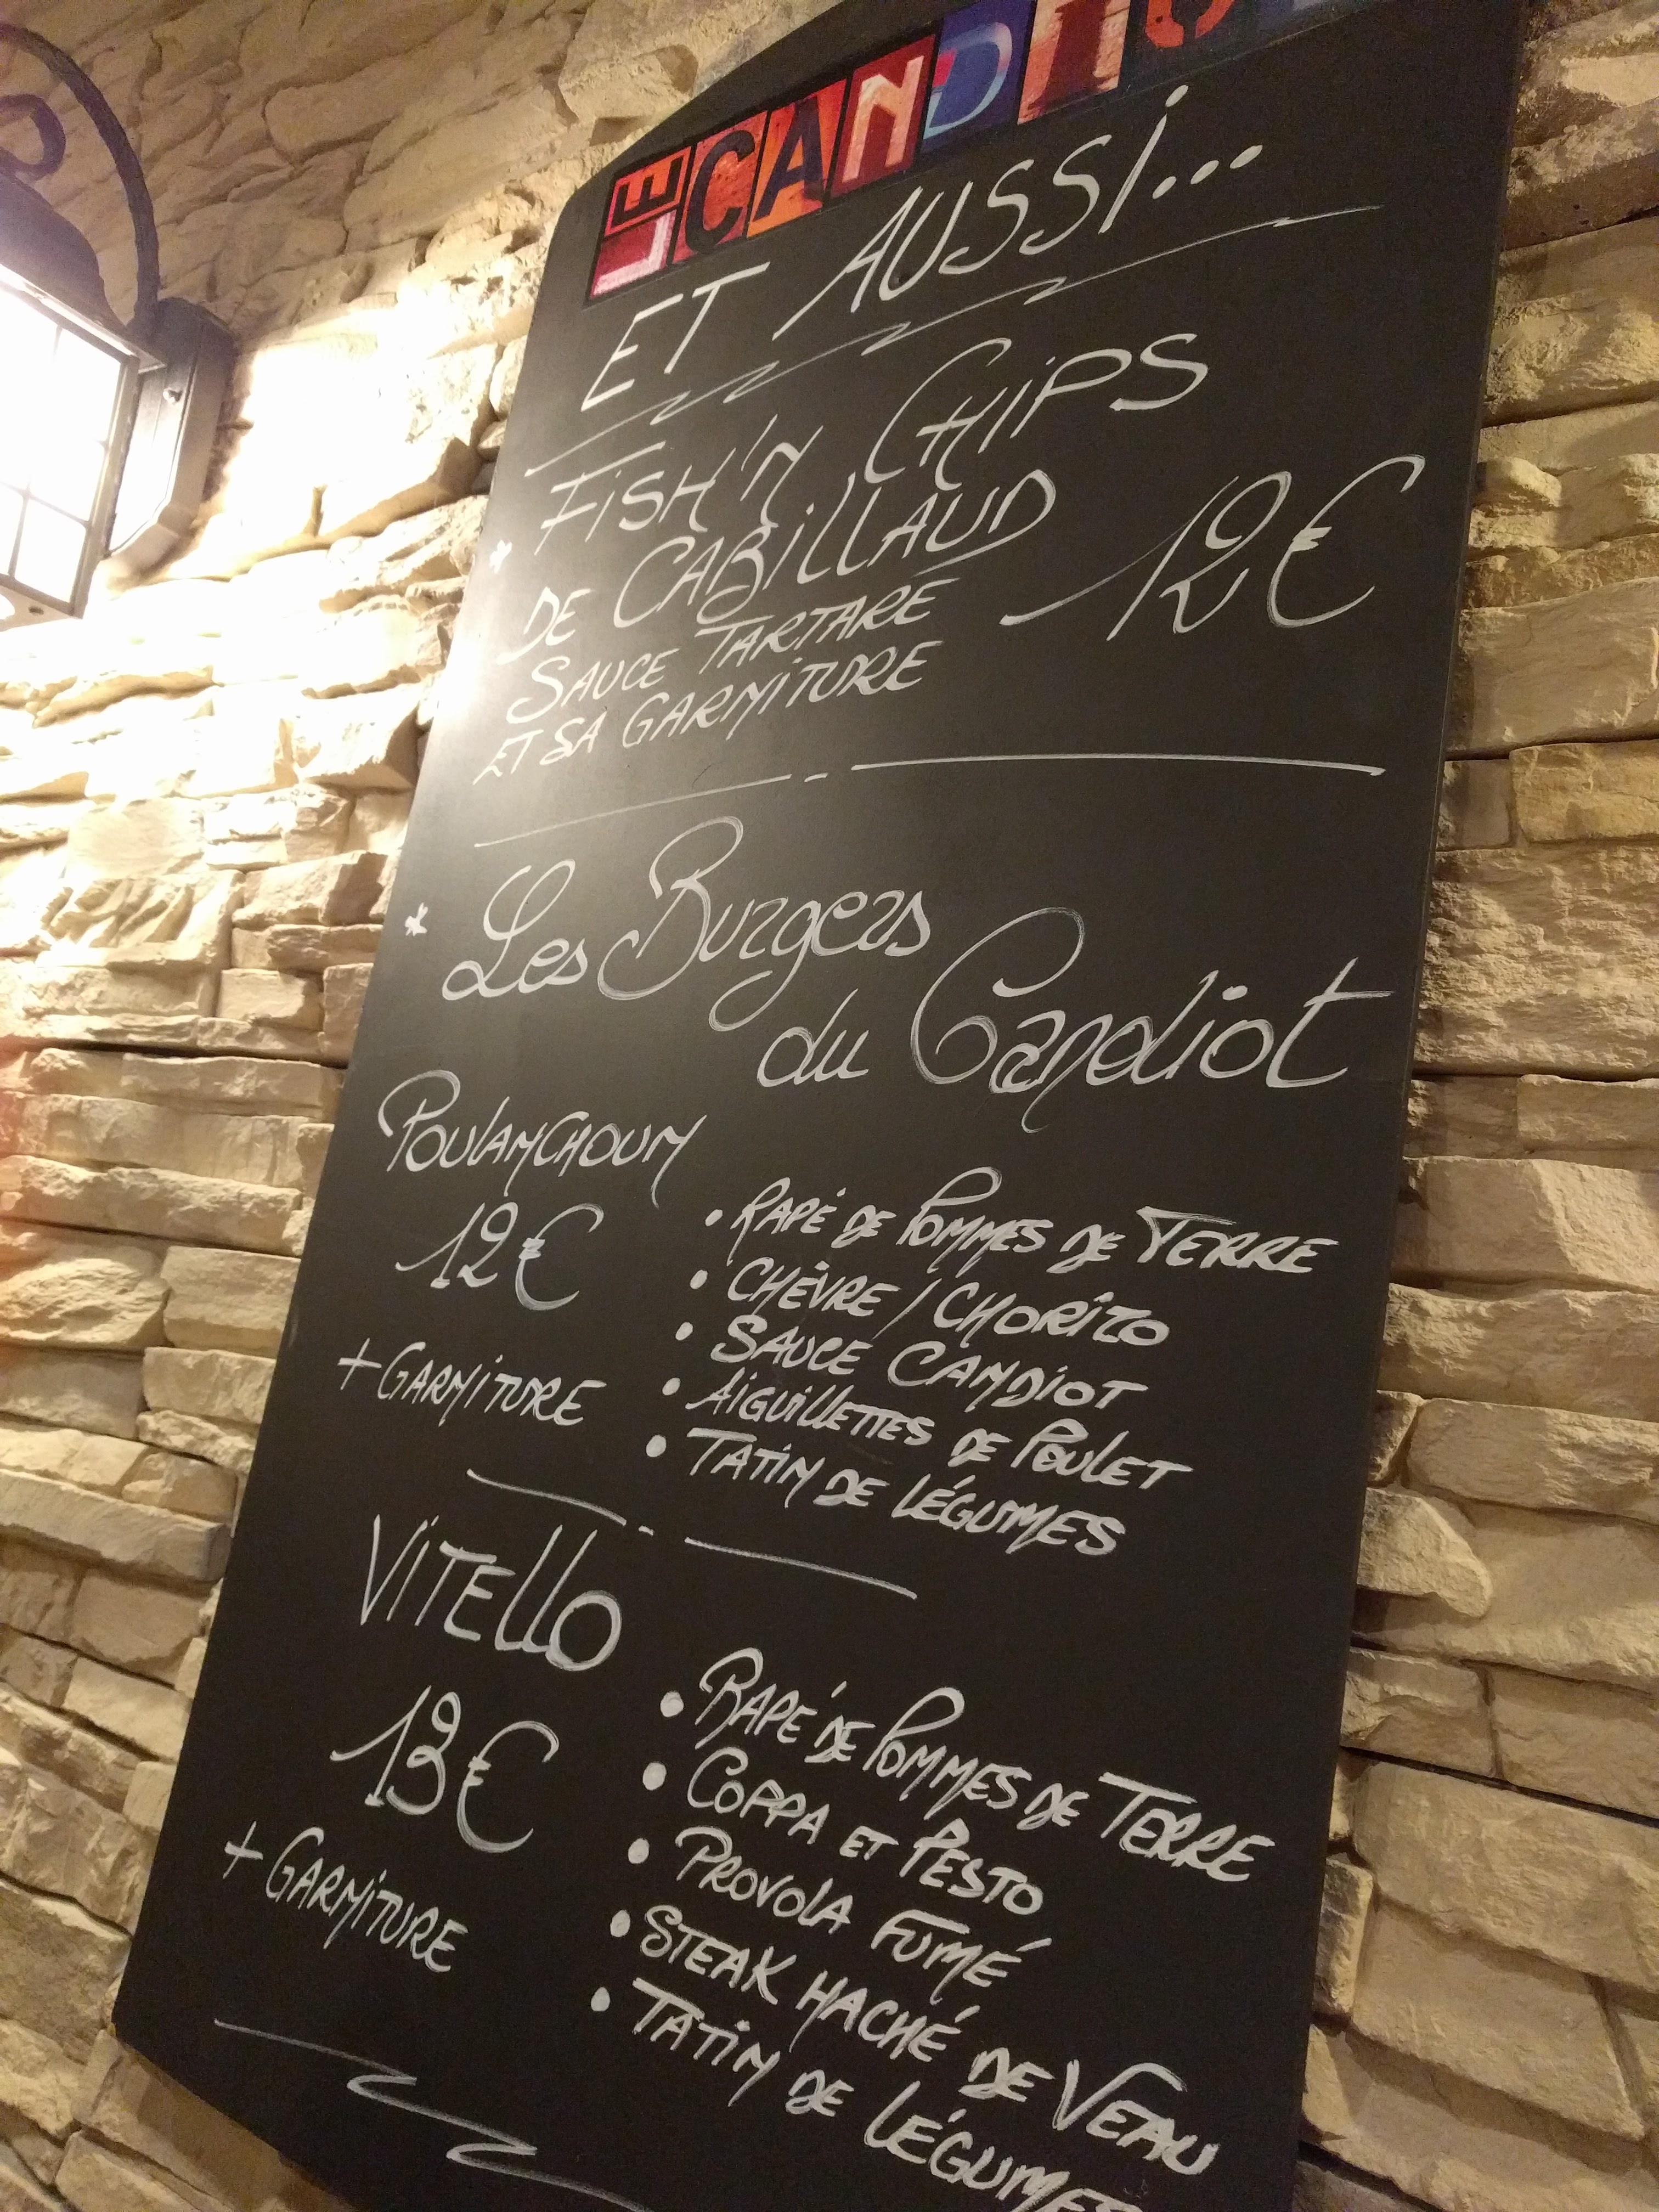 LE CANDIO
ET AUSSI...
* FISH'N CHIPS
DE CABILLAUD
SAUCE TARTARE 12€
ET SA GARNITURE
* Les Burgers
du Candiot
POULANCHOUM
12€
+ GARNITURE
• RAPÉ DE POMMES DE TERRE
• CHÈVRE / CHORIZO
• SAUCE CANDIOT
• AIGUILLETTES DE POULET
• TATIN DE LÉGUMES
VITELLO
13€
+ GARNITURE
• RAPÉ DE POMMES DE TERRE
• COPPA ET PESTO
• PROVOLA FUMÉ
• STEAK HACHÉ DE VEAU
• TATIN DE LÉGUMES